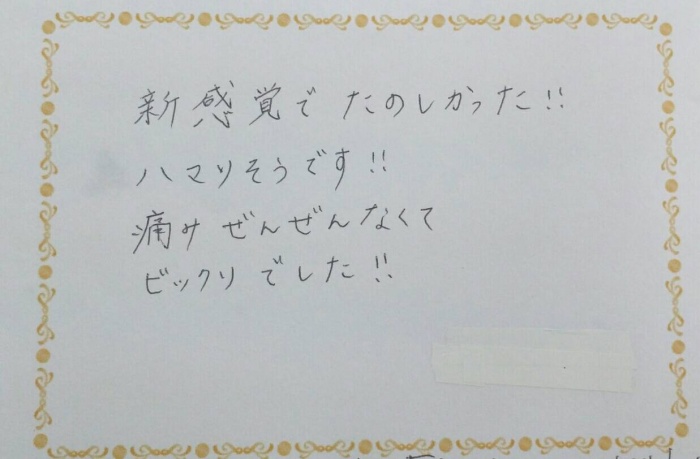 新感覚で たのしかった!!
ハマりそうです!!
痛み ぜんぜんなくて
ビックリ でした!!